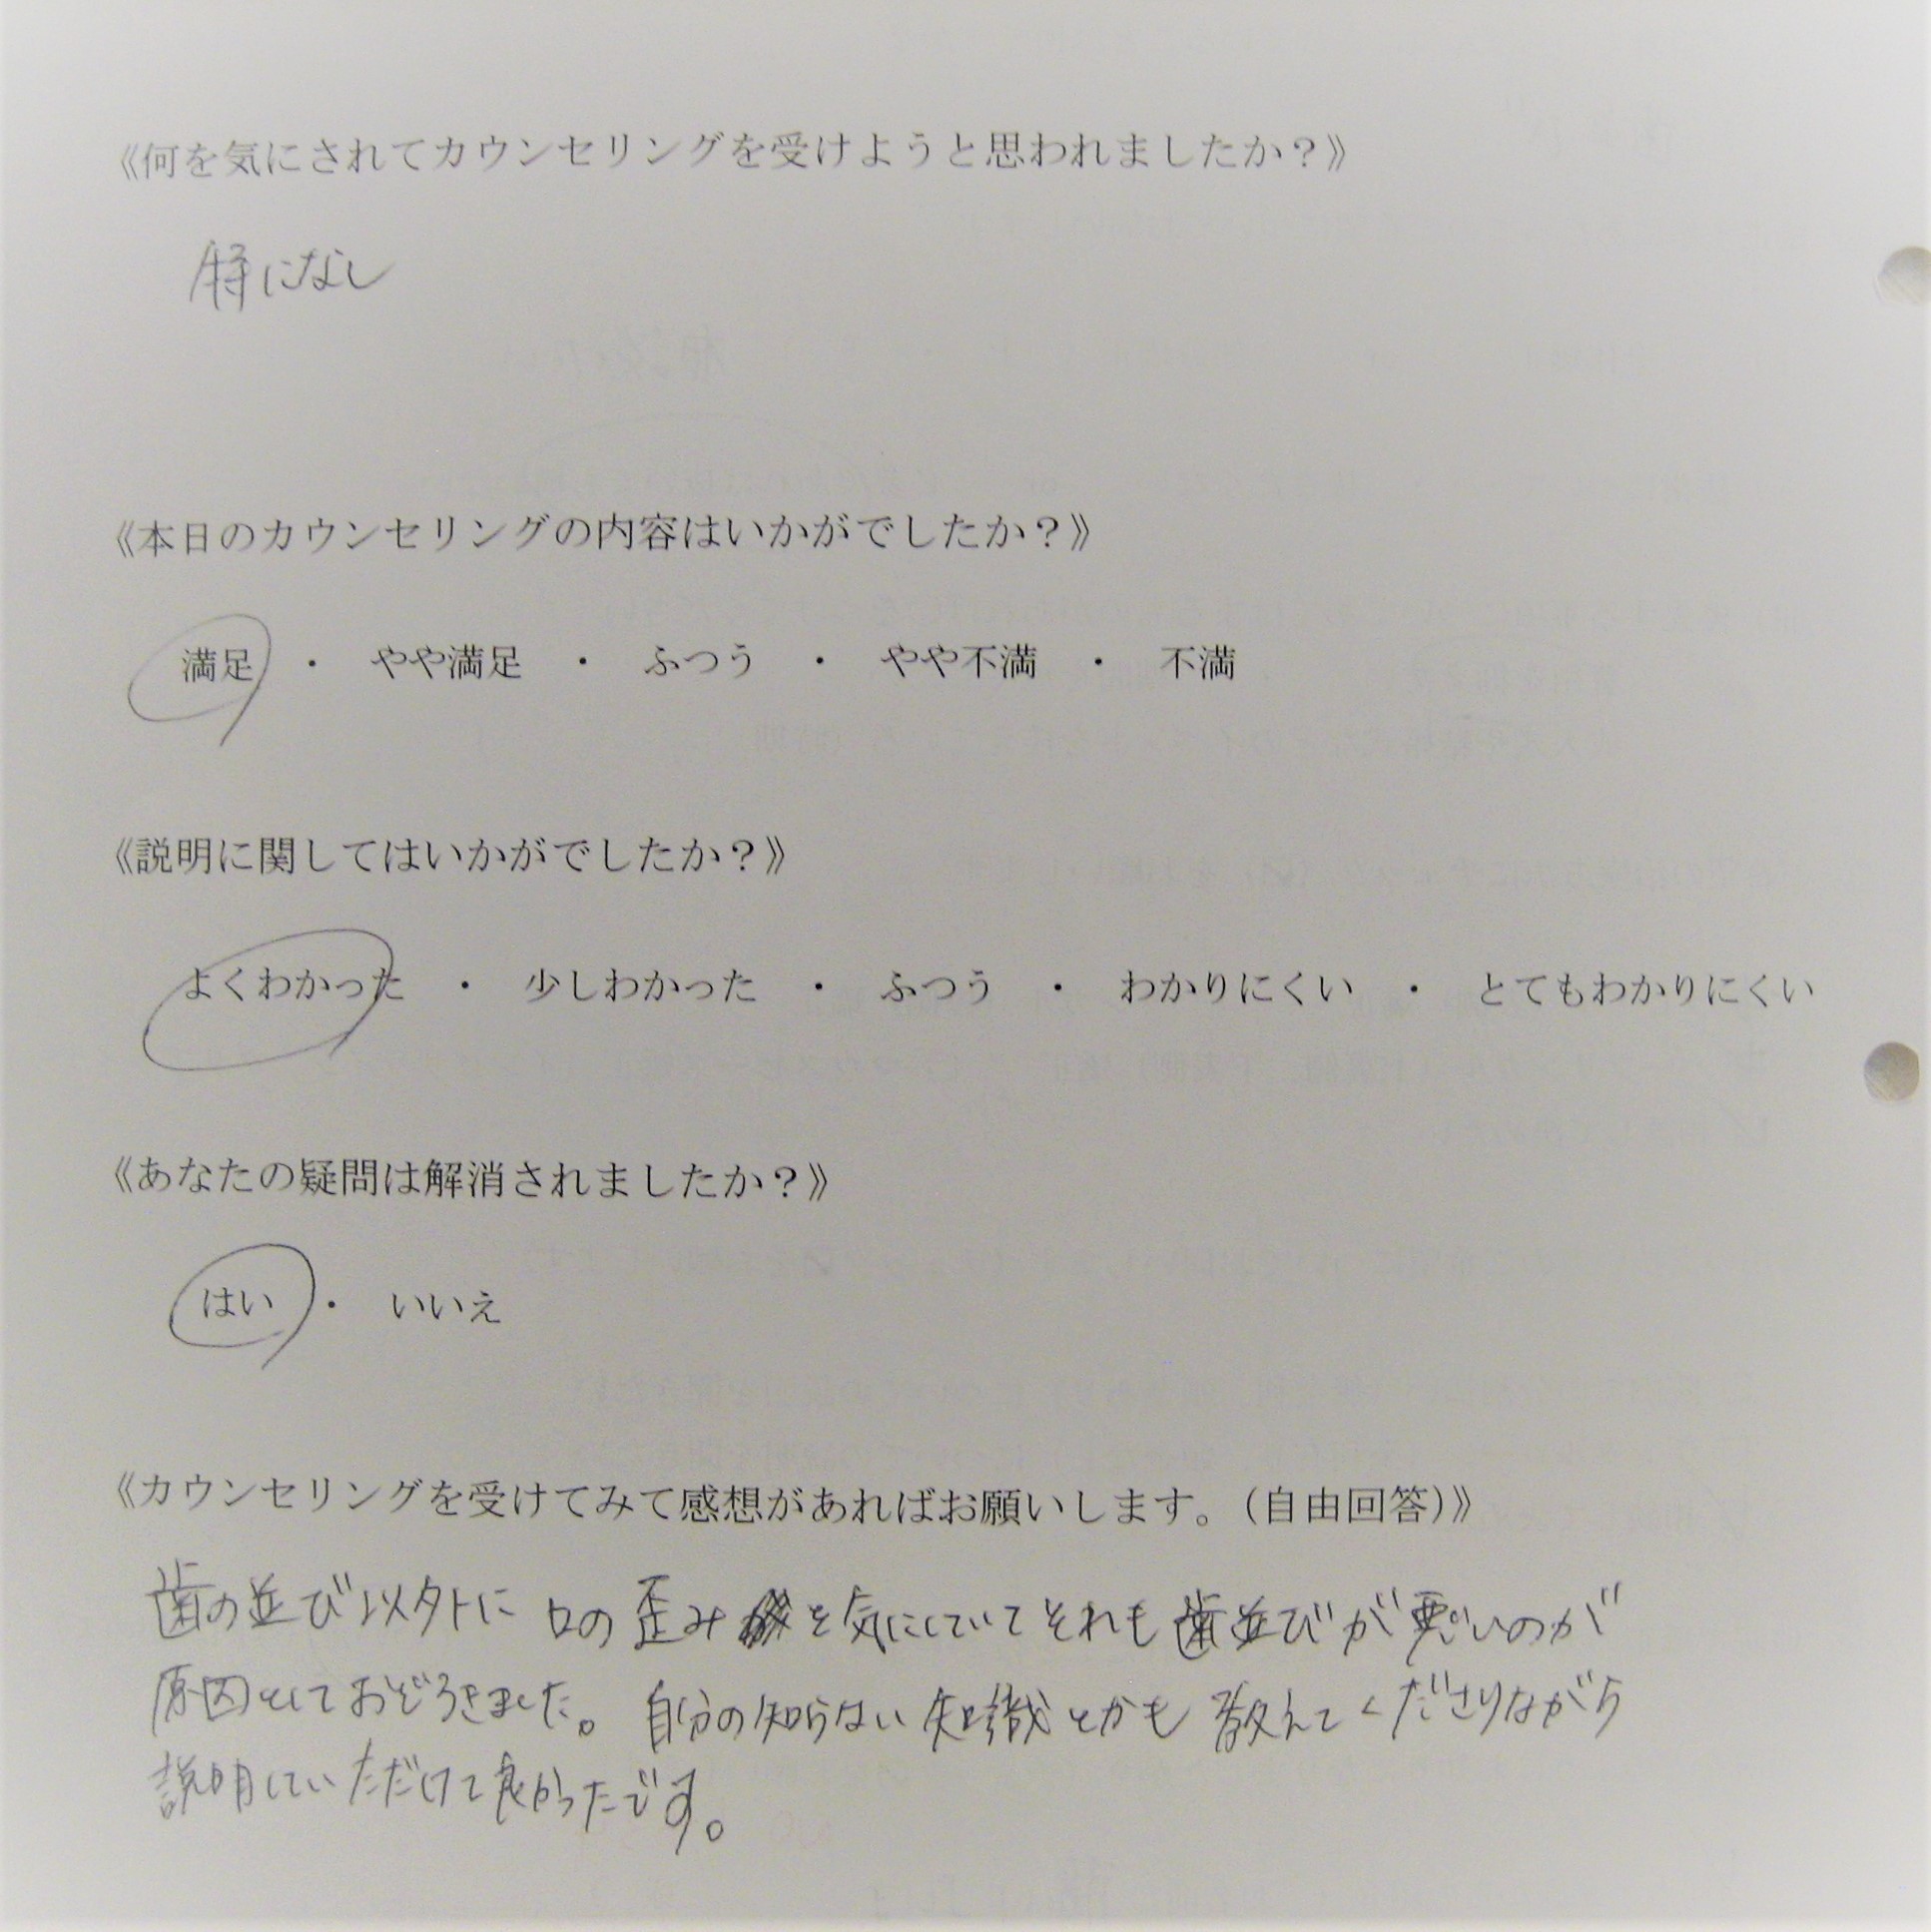 《何を気にされてカウンセリングを受けようと思われましたか？》
特になし
《本日のカウンセリングの内容はいかがでしたか？》
満足　・　やや満足　・　ふつう　・　やや不満　・　不満
《説明に関してはいかがでしたか？》
よくわかった　・　少しわかった　・　ふつう　・　わかりにくい　・　とてもわかりにくい
《あなたの疑問は解消されましたか？》
はい　・　いいえ
《カウンセリングを受けてみて感想があればお願いします。（自由回答）》
歯の並び以外に口の歪みを気にしていてそれも歯並びが悪いのが
原因としておどろきました。自分の知らない知識とかも教えてくださりながら
説明していただけて良かったです。